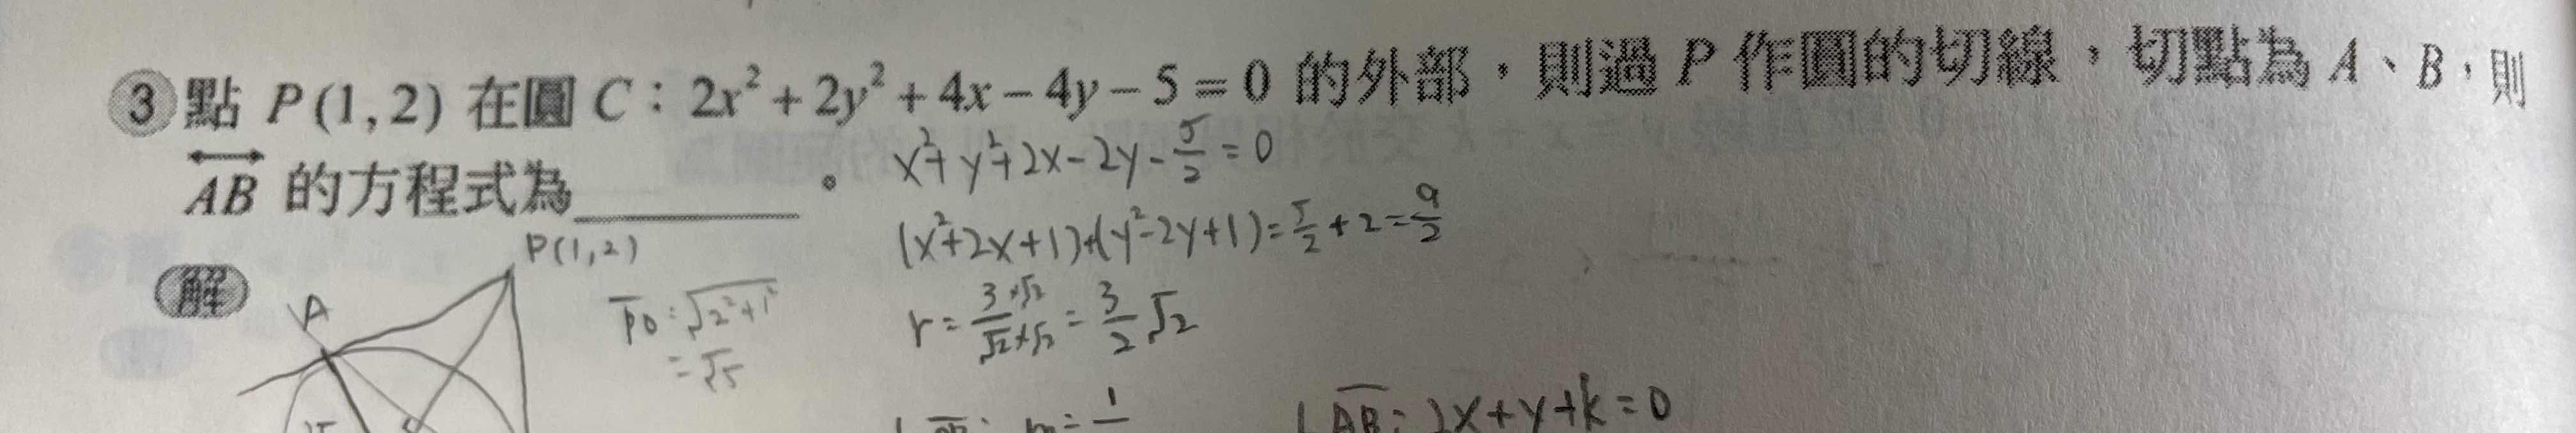 ③ 點 P(1,2) 在圓 C：2x²+2y²+4x−4y−5=0 的外部，則過 P 作圓的切線，切點為 A、B，則
AB 的方程式為________。
x²+y²+2x-2y-5/2=0
(x²+2x+1)+(y²-2y+1)=5/2+2=9/2
P(1,2)
解
A
PO=√2²+1²
=√5
r=3×√2/√2×√2=3/2√2
m=1
L AB: 2x+y+k=0